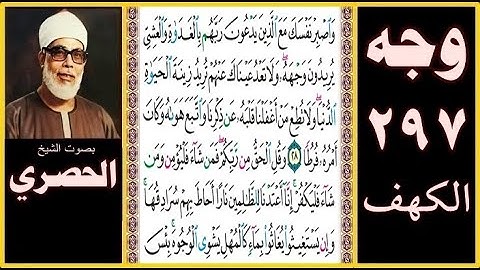 وجه
٢٩٧
الكهف
وَاصْبِرْ نَفْسَكَ مَعَ الَّذِينَ يَدْعُونَ رَبَّهُم بِالْغَدَوٰةِ وَالْعَشِىِّ
يُرِيدُونَ وَجْهَهُۥ وَلَا تَعْدُ عَيْنَاكَ عَنْهُمْ تُرِيدُ زِينَةَ الْحَيَوٰةِ
الدُّنْيَا وَلَا تُطِعْ مَنْ أَغْفَلْنَا قَلْبَهُۥ عَن ذِكْرِنَا وَاتَّبَعَ هَوَىٰهُ وَكَانَ
أَمْرُهُۥ فُرُطًا ٢٨ وَقُلِ الْحَقُّ مِن رَّبِّكُمْ فَمَن شَاءَ فَلْيُؤْمِن وَمَن
شَاءَ فَلْيَكْفُرْ إِنَّا أَعْتَدْنَا لِلظَّٰلِمِينَ نَارًا أَحَاطَ بِهِمْ سُرَادِقُهَا
وَإِن يَسْتَغِيثُوا يُغَاثُوا بِمَاءٍ كَالْمُهْلِ يَشْوِى الْوُجُوهَ بِئْسَ
بصوت الشيخ
الحصري